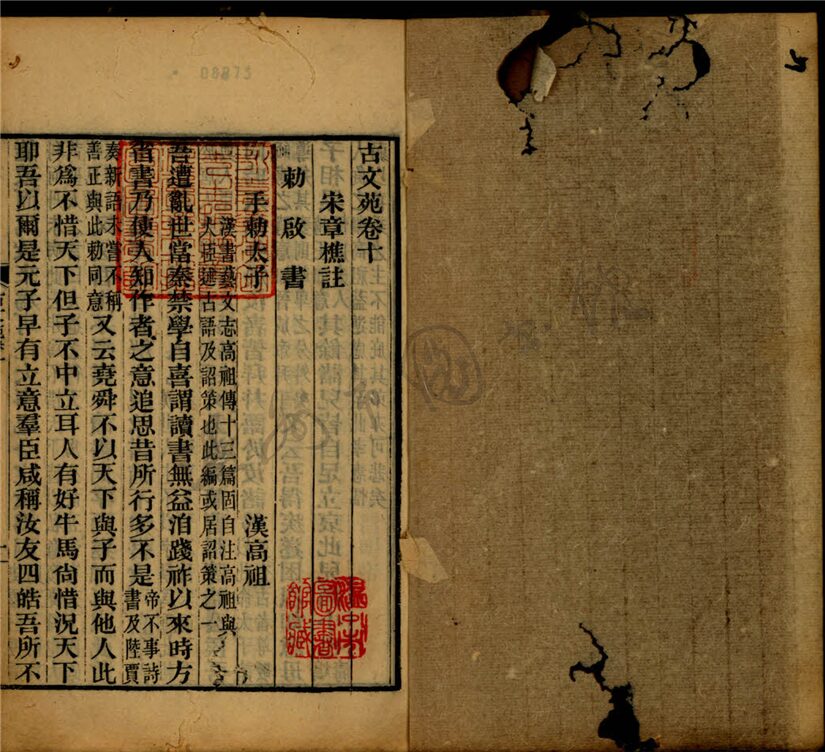 古文苑卷十
宋章樵註
勅啟書
手勅太子
漢高祖
漢書藝文志高祖傳十三篇固自注高祖與
大臣述古語及詔策也此編或居詔策之一
吾遭亂世當秦禁學自喜謂讀書無益洎踐祚以來時方
省書乃使人知作者之意追思昔所行多不是帝不事詩書及陸賈
奏新語未嘗不稱善正與此勅同意又云堯舜不以天下與子而與他人此
非為不惜天下但子不中立耳人有好牛馬尚惜況天下
耶吾以爾是元子早有立意羣臣咸稱汝友四皓吾所不
08873